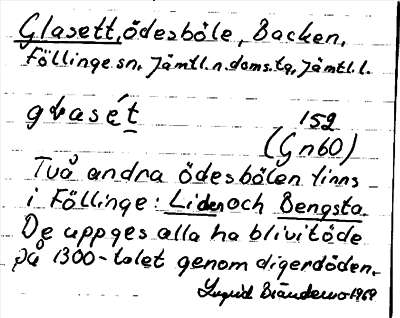 Glasett, ödesböle, Backen,
Föllinge sn, Jämtl. n. doms. tg, Jämtl. l.
glasét
152
(Gn60)
Två andra ödesbölen finns
i Föllinge: Liden och Bengsta.
De uppges alla ha blivit öde
på 1300-talet genom digerdöden.
1969